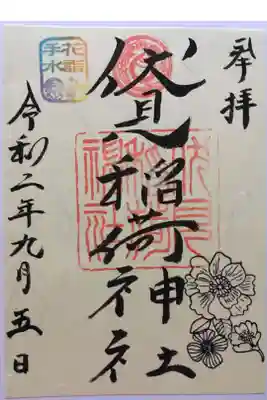 奉拝
伏見稲荷神社
令和二年九月五日
花詣
手水